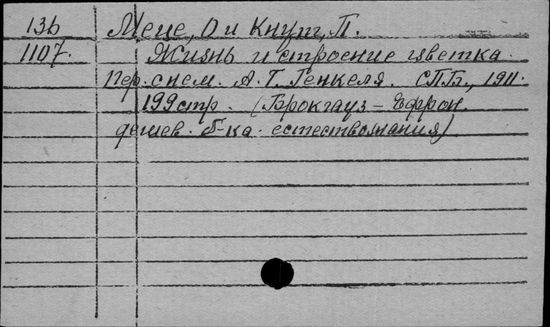 13б Меце, О и Кнут, П.
1107. Жизнь и строение цветка.
Пер. с нем. А. Г. Генкеля. СПБ., 1911.
199 стр. (Брокгауз – Ефрон.
дешев. б-ка. естествознания)